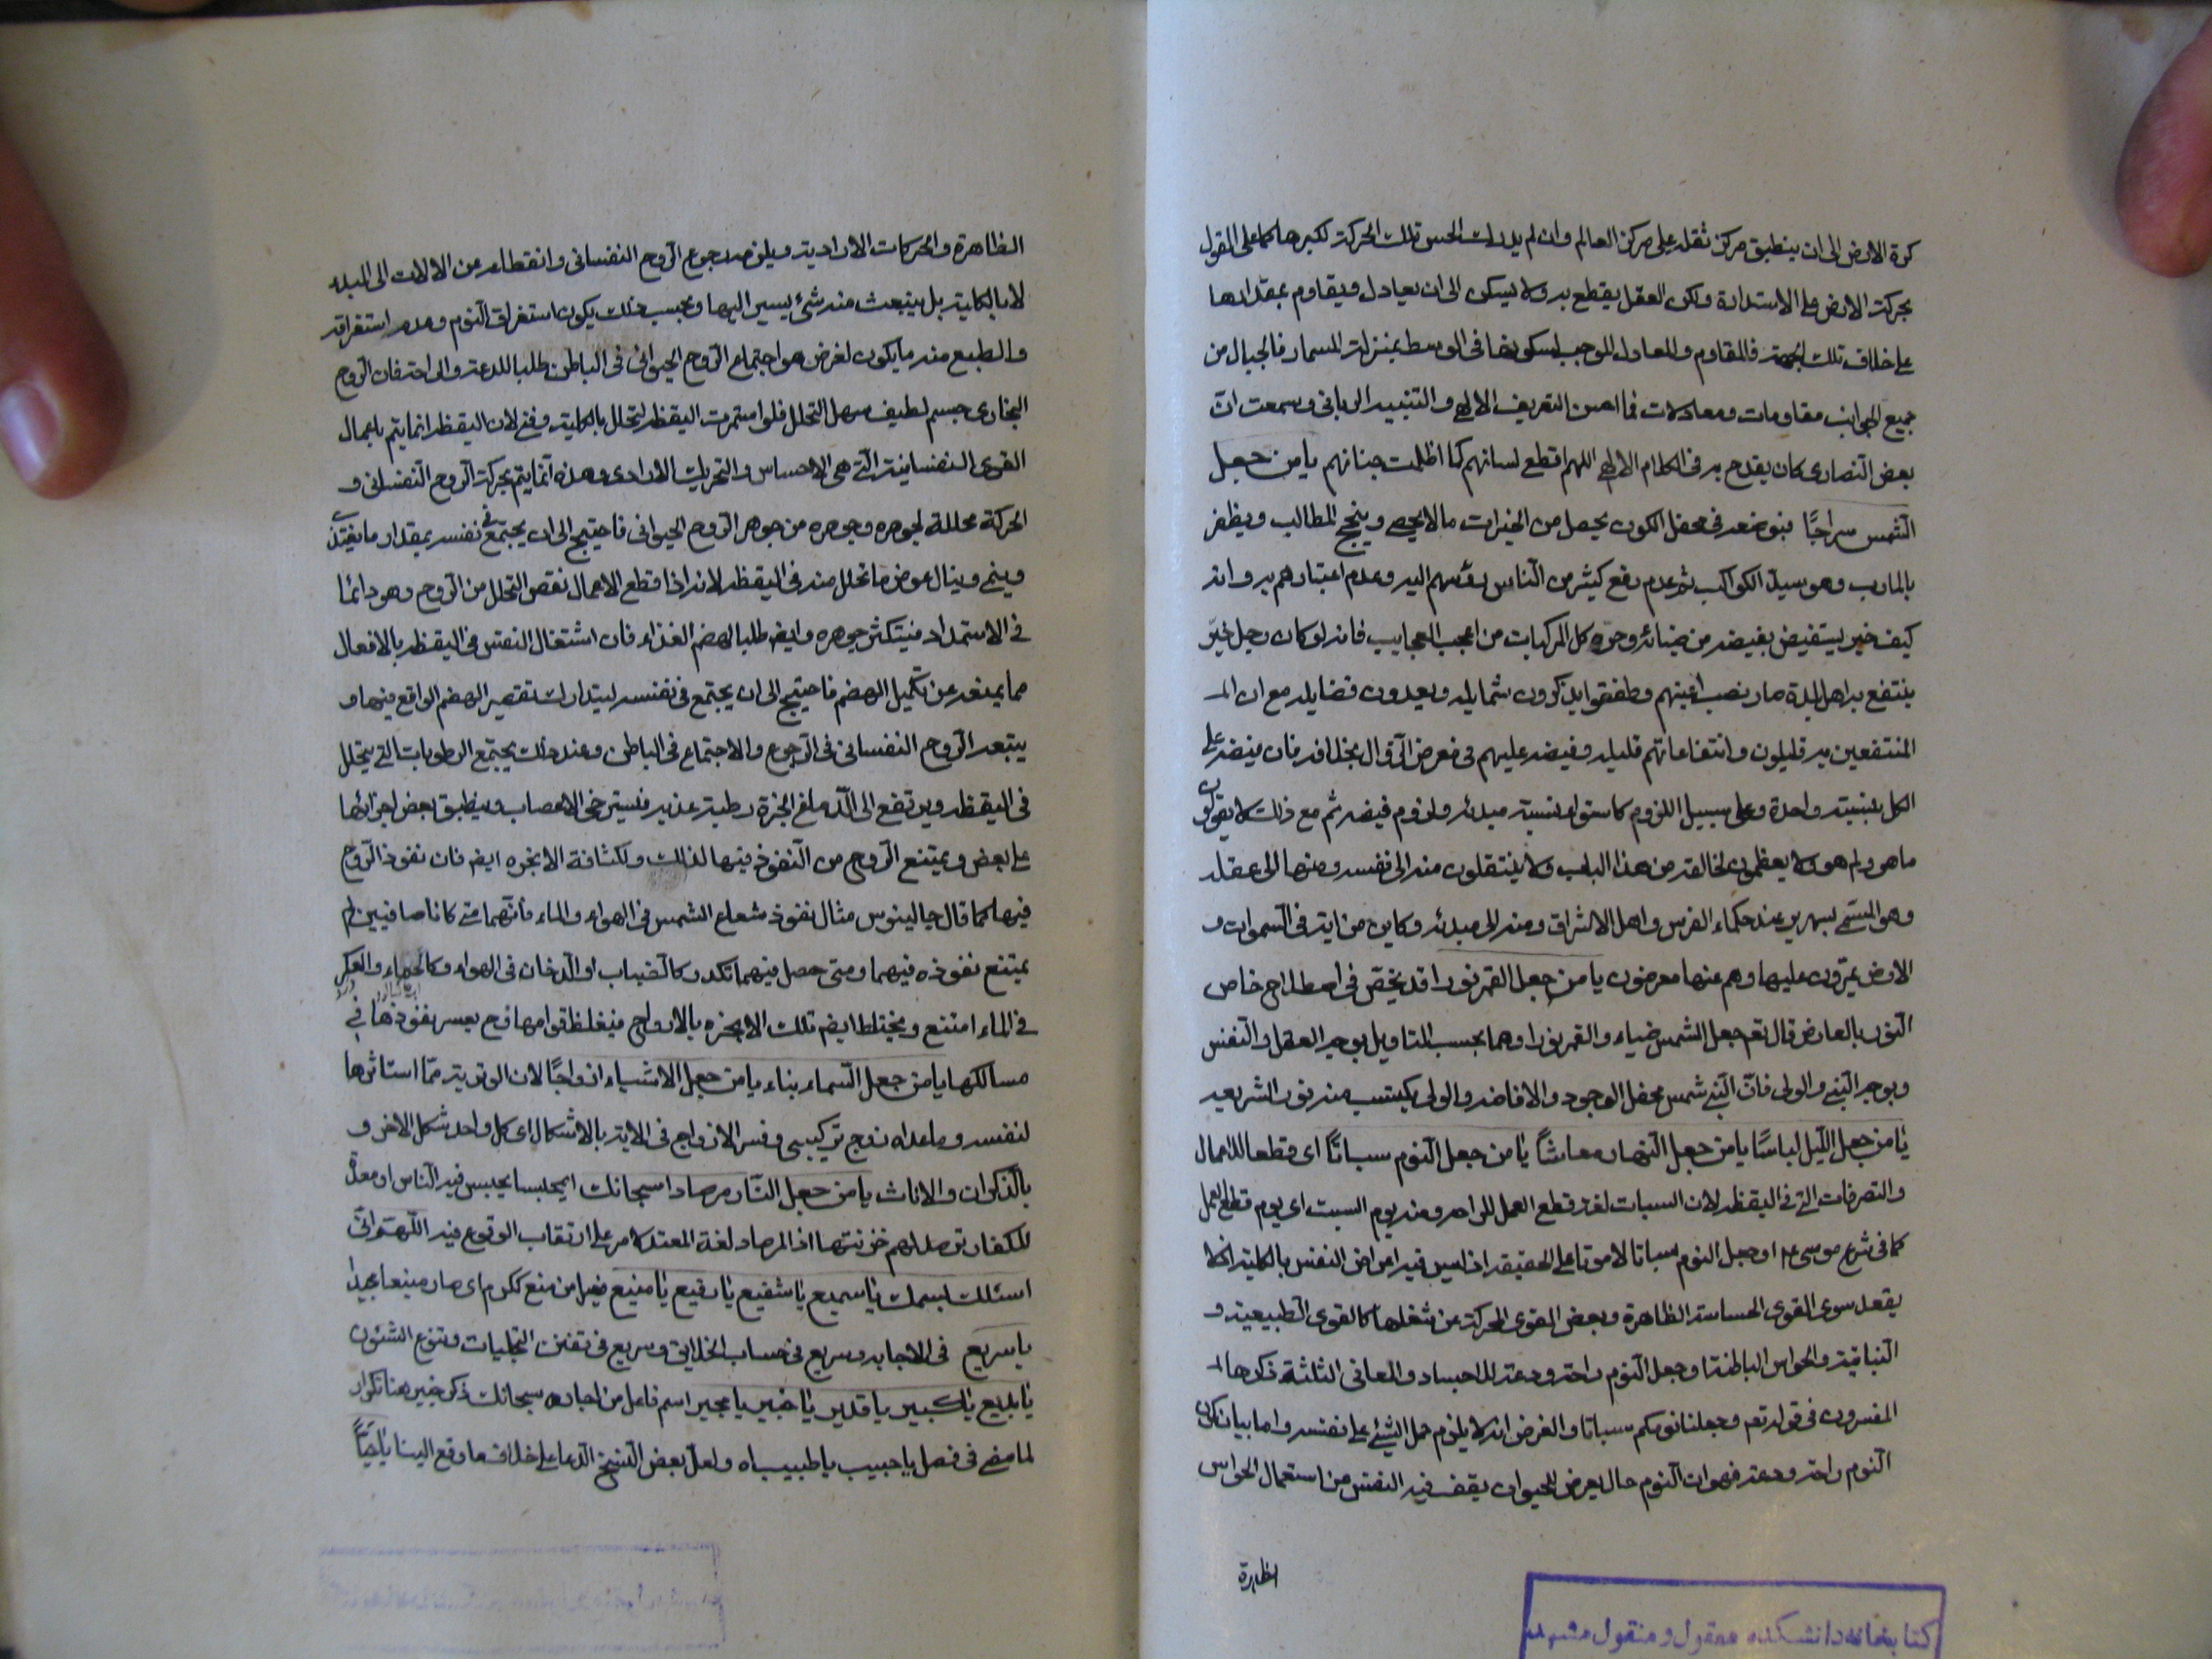 كرة الارض الى ان ينطبق مركز ثقله على مركز العالم وان لم يدرك الحس تلك الحركة لكبرها كما على القول
بحركة الارض على الاستدارة ولكن العقل يقطع به ولا يسكن الى ان يعادل ويقاوم بمقدارها
على خلاف تلك الجهة فالمقاوم والمعادل الموجب لسكونها فى الوسط بمنزلة المسمار فالجبال من
جميع الجوانب مقاومات ومعادلات فما احسن التعريف الالهى والتنبيه الربانى وسمعت انّ
بعض النصارى كان يقدح به فى الكلام الالهى اللهم اقطع لسانهم كما اظلمت جنانهم يا من جعل
الشمس سراجًا فبوضعه فى محفل الكون يحصل من الخيرات ما لا يحصى وينجح المطالب ويظفر
بالمارب وهو سيد الكواكب ثم عدم رفع كثير من الناس رؤسهم اليه وعدم اعتبارهم به وانه
كيف خير يستفيض بفيضه من ضيائه وحره كل المركبات من اعجب العجايب فانه لو كان رجل خيّر
ينتفع به اهل بلدة صار نصب اعينهم وطفقوا يذكرون شمايله ويعدون فضايله مع ان الـ
المنتفعين به قليلون وانتفاعاتهم قليلة وفيضه عليهم فى معرض الزوال بخلافه فان فيضه على
الكل بنسبة واحدة وعلى سبيل اللزوم كاستواء نسبة مبدئه ولزوم فيضه ثم مع ذلك لا يقولون
ما هو ولم هو ولا يعظمون لخالقه من هذا الباب ولا ينتقلون منه الى نفسه ومنها الى عقله
وهو المسمى بسهرير عند حكماء الفرس واهل الاشراق ومنه الى مبدئه وكاين من اية فى السموات و
الارض يمرّون عليها وهم عنها معرضون يا من جعل القمر نورا قد يخصّ فى اصطلاح خاص
النور بالعارض قال تعم جعل الشمس ضياء والقمر نورا وهما بحسب التاويل بوجه العقل والنفس
وبوجه النبى والولى فانّ النبى شمس محفل الوجود والافاضة والولى يكتسب منه نور الشريعة
يا من جعل الليل لباسًا يا من جعل النهار معاشًا يا من جعل النوم سباتًا اى قطعا للاعمال
والتصرفات التى فى اليقظة لان السبات لغة قطع العمل للراحة ومنه يوم السبت اى يوم قطع العمل
كما فى شرع موسى ع او جعل النوم سباتا لا موتا على الحقيقة اذ ليس فيه اعراض النفس بالكلية انما
يقعد سوى القوى الحساسة الظاهرة وبعض القوى المحركة عن شغلها كالقوى الطبيعية و
النباتية والحواس الباطنة او جعل النوم راحة ودعة للاجساد والمعانى الثلثة ذكرها الـ
المفسرون فى قوله تعم وجعلنا نومكم سباتا والغرض انه لا يلزم حمل الشئ على نفسه واما بيان كون
النوم راحة ودعة فهو ان النوم حال يعرض للحيوان يقف فيه النفس من استعمال الحواس
الظاهرة
الظاهرة والحركات الارادية ويلزمه رجوع الروح النفسانى وانقطاعه عن الالات الى المبدء
لا بالكلية بل ينبعث منه شئ يسير اليها وبحسب ذلك يكون استغراق النوم وعدم استغراقه
والطبيع منه ما يكون لغرض هو اجتماع الروح الحيوانى فى الباطن طلبا للدعة والراحة فان الروح
البخارى جسم لطيف سهل التحلل فلو استمرت اليقظة لتحلل بالكلية وفنى لان اليقظة انما يتم باعمال
القوى النفسانية التى هى الاحساس والتحريك الارادى وهذه انما يتم بحركة الروح النفسانى و
الحركة محللة لجوهره وجوهره من جوهر الروح الحيوانى فاحتيج الى ان يجتمع فى نفسه بمقدار ما يغتذى
وينمى وينال عوض ما تحلل منه فى اليقظة لانه اذا قطع الاعمال نقص التحلل من الروح وهو دائما
فى الاستمداد فيتكثر جوهره وايضا طلبا لهضم الغذاء فان اشتغال النفس فى اليقظة بالافعال
مما يمنعه عن تكميل الهضم فاحتيج الى ان يجتمع فى نفسه ليتدارك تقصير الهضم الواقع فيها و
يتبعه الروح النفسانى فى الرجوع والاجتماع فى الباطن وعند ذلك يجتمع الرطوبات التى يتحلل
فى اليقظة ويرتفع الى الدماغ ابخرة رطبة عذبة فيسترخى الاعصاب وينطبق بعض اجزائها
على بعض ويمتنع الروح من النفوذ فيها لذلك ولكثافة الابخره ايضا فان نفوذ الروح
فيها كما قال جالينوس مثال نفوذ شعاع الشمس فى الهواء والماء فانهما متى كانا صافيين لم
يمتنع نفوذه فيهما ومتى حصل فيهما تكدر كالضباب او الدخان فى الهواء وكالحماء والعكر
فى الماء امتنع ويختلط ايضا تلك الابخره بالارواح فيغلظ قوامها فح يعسر نفوذها فى
مسالكها يا من جعل السماء بناء يا من جعل الاشياء ازواجًا لان الوترية ممّا استاثرها
لنفسه وما عداه زوج تركيبى وفسر الازواج فى الاية بالاشكال اى كل واحد شكل الاخر و
بالذكران والاناث يا من جعل النّار مرصادا سبحانك اى محبسا يحبس فيه الناس او معدّة
للكفار ترصدهم خزنتها اذ المرصاد لغة المعد لامر على ارتقاب الوقوع فيه اللهم انى
اسئلك باسمك يا سميع يا شفيع يا رفيع يا منيع فعيل من منع ككرم اى صار منيعا مجيدا
يا سريع فى الاجابة وسريع فى حساب الخلايق وسريع فى تفنن التجليات وتنوع الشئون
يا بديع يا كبير يا قدير يا خبير يا مجير اسم فاعل من اجاره سبحانك ذكر خبير هنا تكرار
لما مضى فى فصل يا حبيب يا طبيب اه ولعل بعض النسخ الدعا على خلاف ما وقع الينا يا حيّاً
كتابخانه دانشكده معقول و منقول مشهد